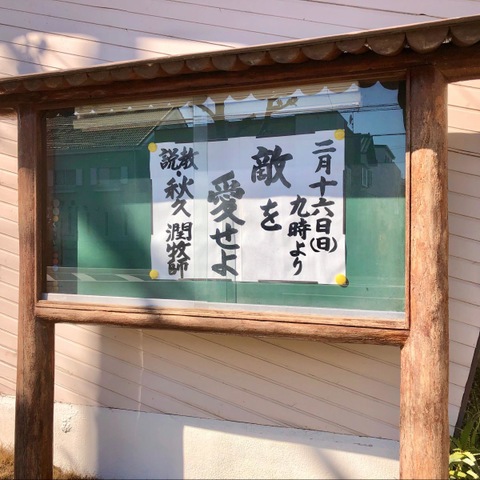 二月十六日(日)
九時より
敵を
愛せよ
説教・秋久潤牧師